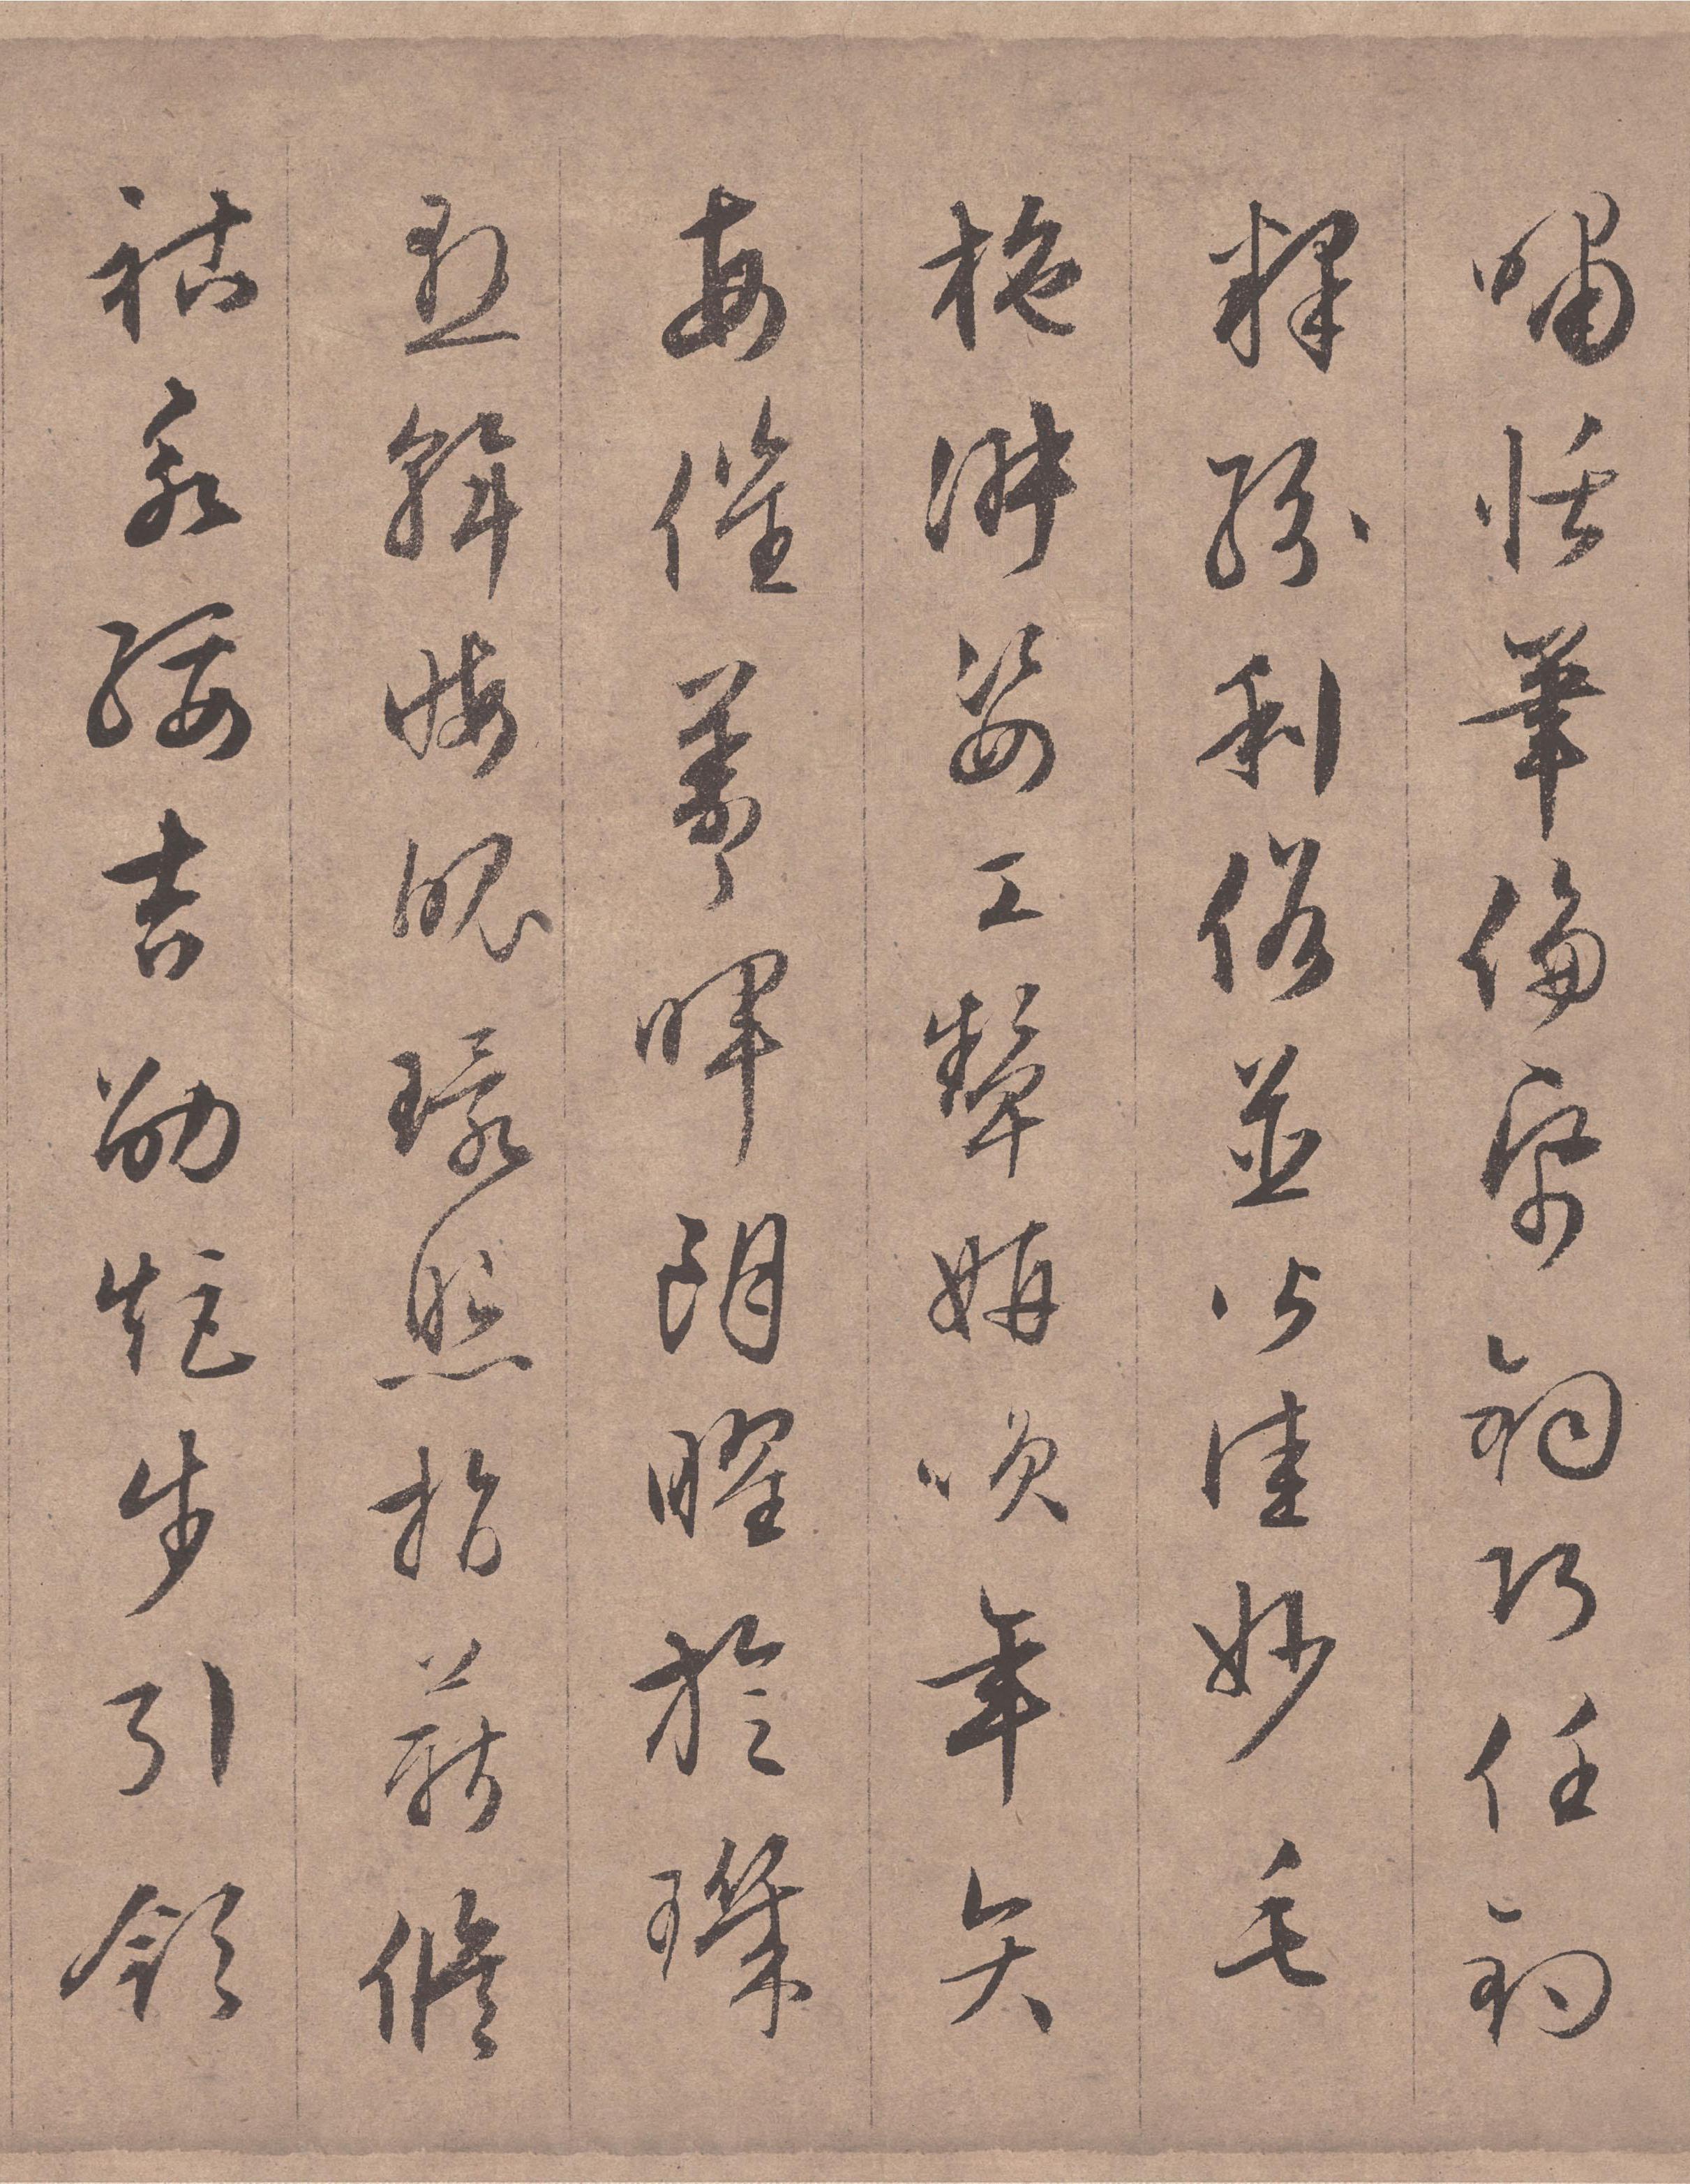 嘯恬筆倫帋鈞巧任釣
釋紛利俗並皆佳妙毛
施淑姿工顰妍咲年矢
每催羲暉朗曜旋璣
懸斡晦魄環照指薪修
祜永綏吉劭矩步引領